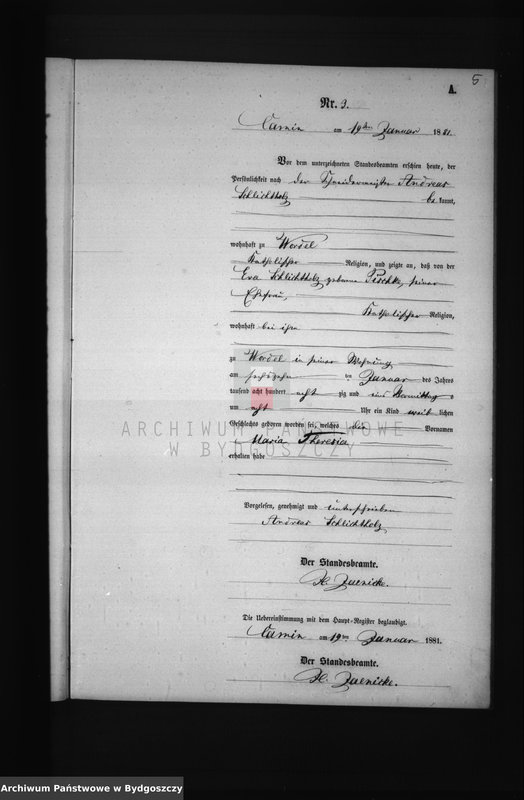 5
A.
Nr. 3.
Camin am 19ten Januar 1881.
Vor dem unterzeichneten Standesbeamten erschien heute, der
Persönlichkeit nach der Schneidermeister Andreas
Schlichtholz bekannt,
wohnhaft zu Wordel
Katholischer Religion, und zeigte an, daß von der
Eva Schlichtholz geborene Peschke, seiner
Ehefrau,
Katholischer Religion,
wohnhaft bei ihm
zu Wordel in seiner Wohnung
am sechszehn ten Januar des Jahres
tausend acht hundert acht zig und eins Vormittags
um acht Uhr ein Kind weib lichen
Geschlechts geboren worden sei, welches die Vornamen
Maria Theresia
erhalten habe
Vorgelesen, genehmigt und unterschrieben
Andreas Schlichtholz
Der Standesbeamte.
H. Jaenicke.
Die Uebereinstimmung mit dem Haupt-Register beglaubigt.
Camin am 19ten Januar 1881.
Der Standesbeamte.
H. Jaenicke.
ARCHIWUM PAŃSTWOWE
W BYDGOSZCZY
Archiwum Państwowe w Bydgoszczy